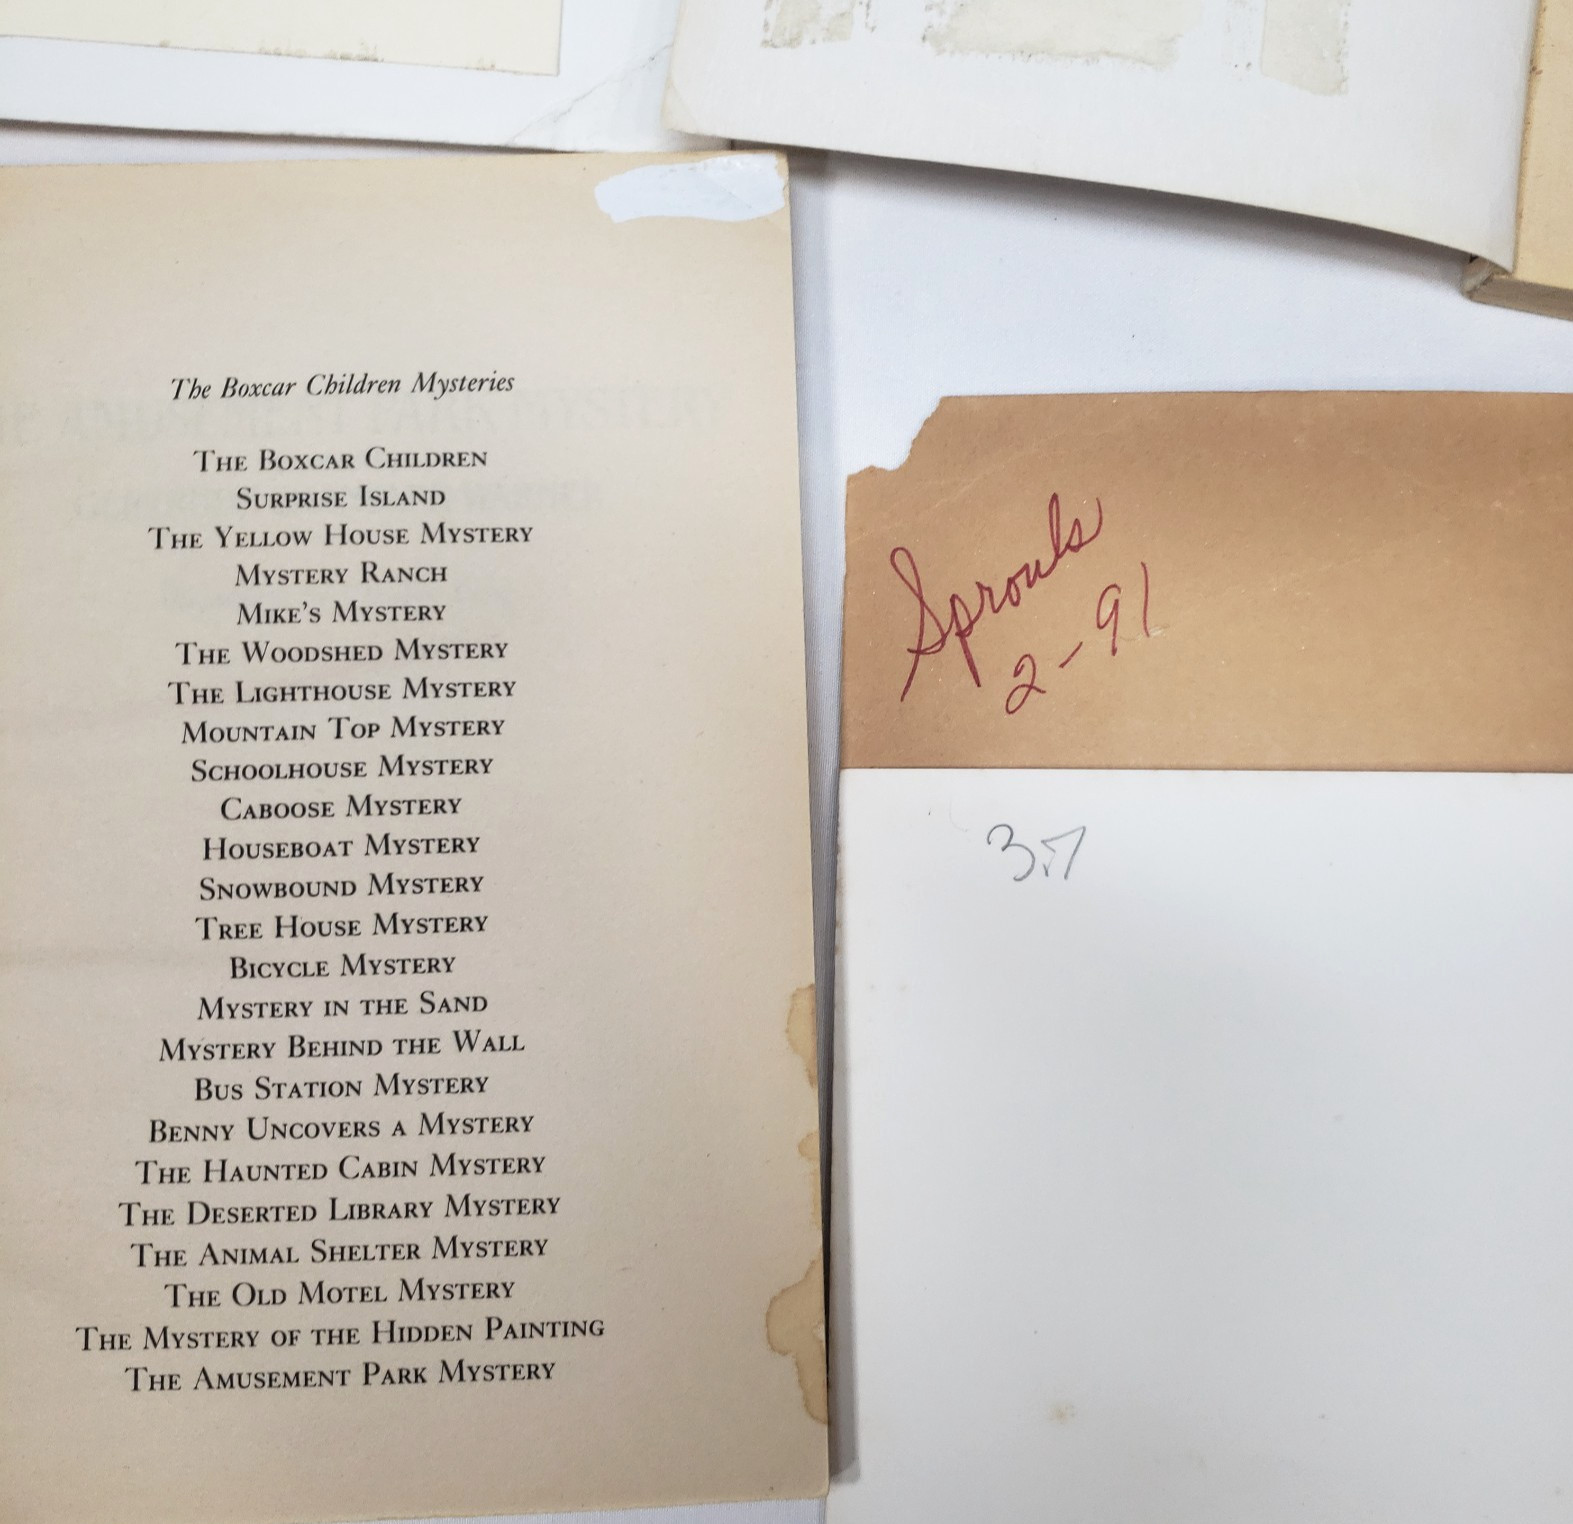 The Boxcar Children Mysteries
THE BOXCAR CHILDREN
SURPRISE ISLAND
THE YELLOW HOUSE MYSTERY
MYSTERY RANCH
MIKE'S MYSTERY
THE WOODSHED MYSTERY
THE LIGHTHOUSE MYSTERY
MOUNTAIN TOP MYSTERY
SCHOOLHOUSE MYSTERY
CABOOSE MYSTERY
HOUSEBOAT MYSTERY
SNOWBOUND MYSTERY
TREE HOUSE MYSTERY
BICYCLE MYSTERY
MYSTERY IN THE SAND
MYSTERY BEHIND THE WALL
BUS STATION MYSTERY
BENNY UNCOVERS A MYSTERY
THE HAUNTED CABIN MYSTERY
THE DESERTED LIBRARY MYSTERY
THE ANIMAL SHELTER MYSTERY
THE OLD MOTEL MYSTERY
THE MYSTERY OF THE HIDDEN PAINTING
THE AMUSEMENT PARK MYSTERY
Sprouls
2-91